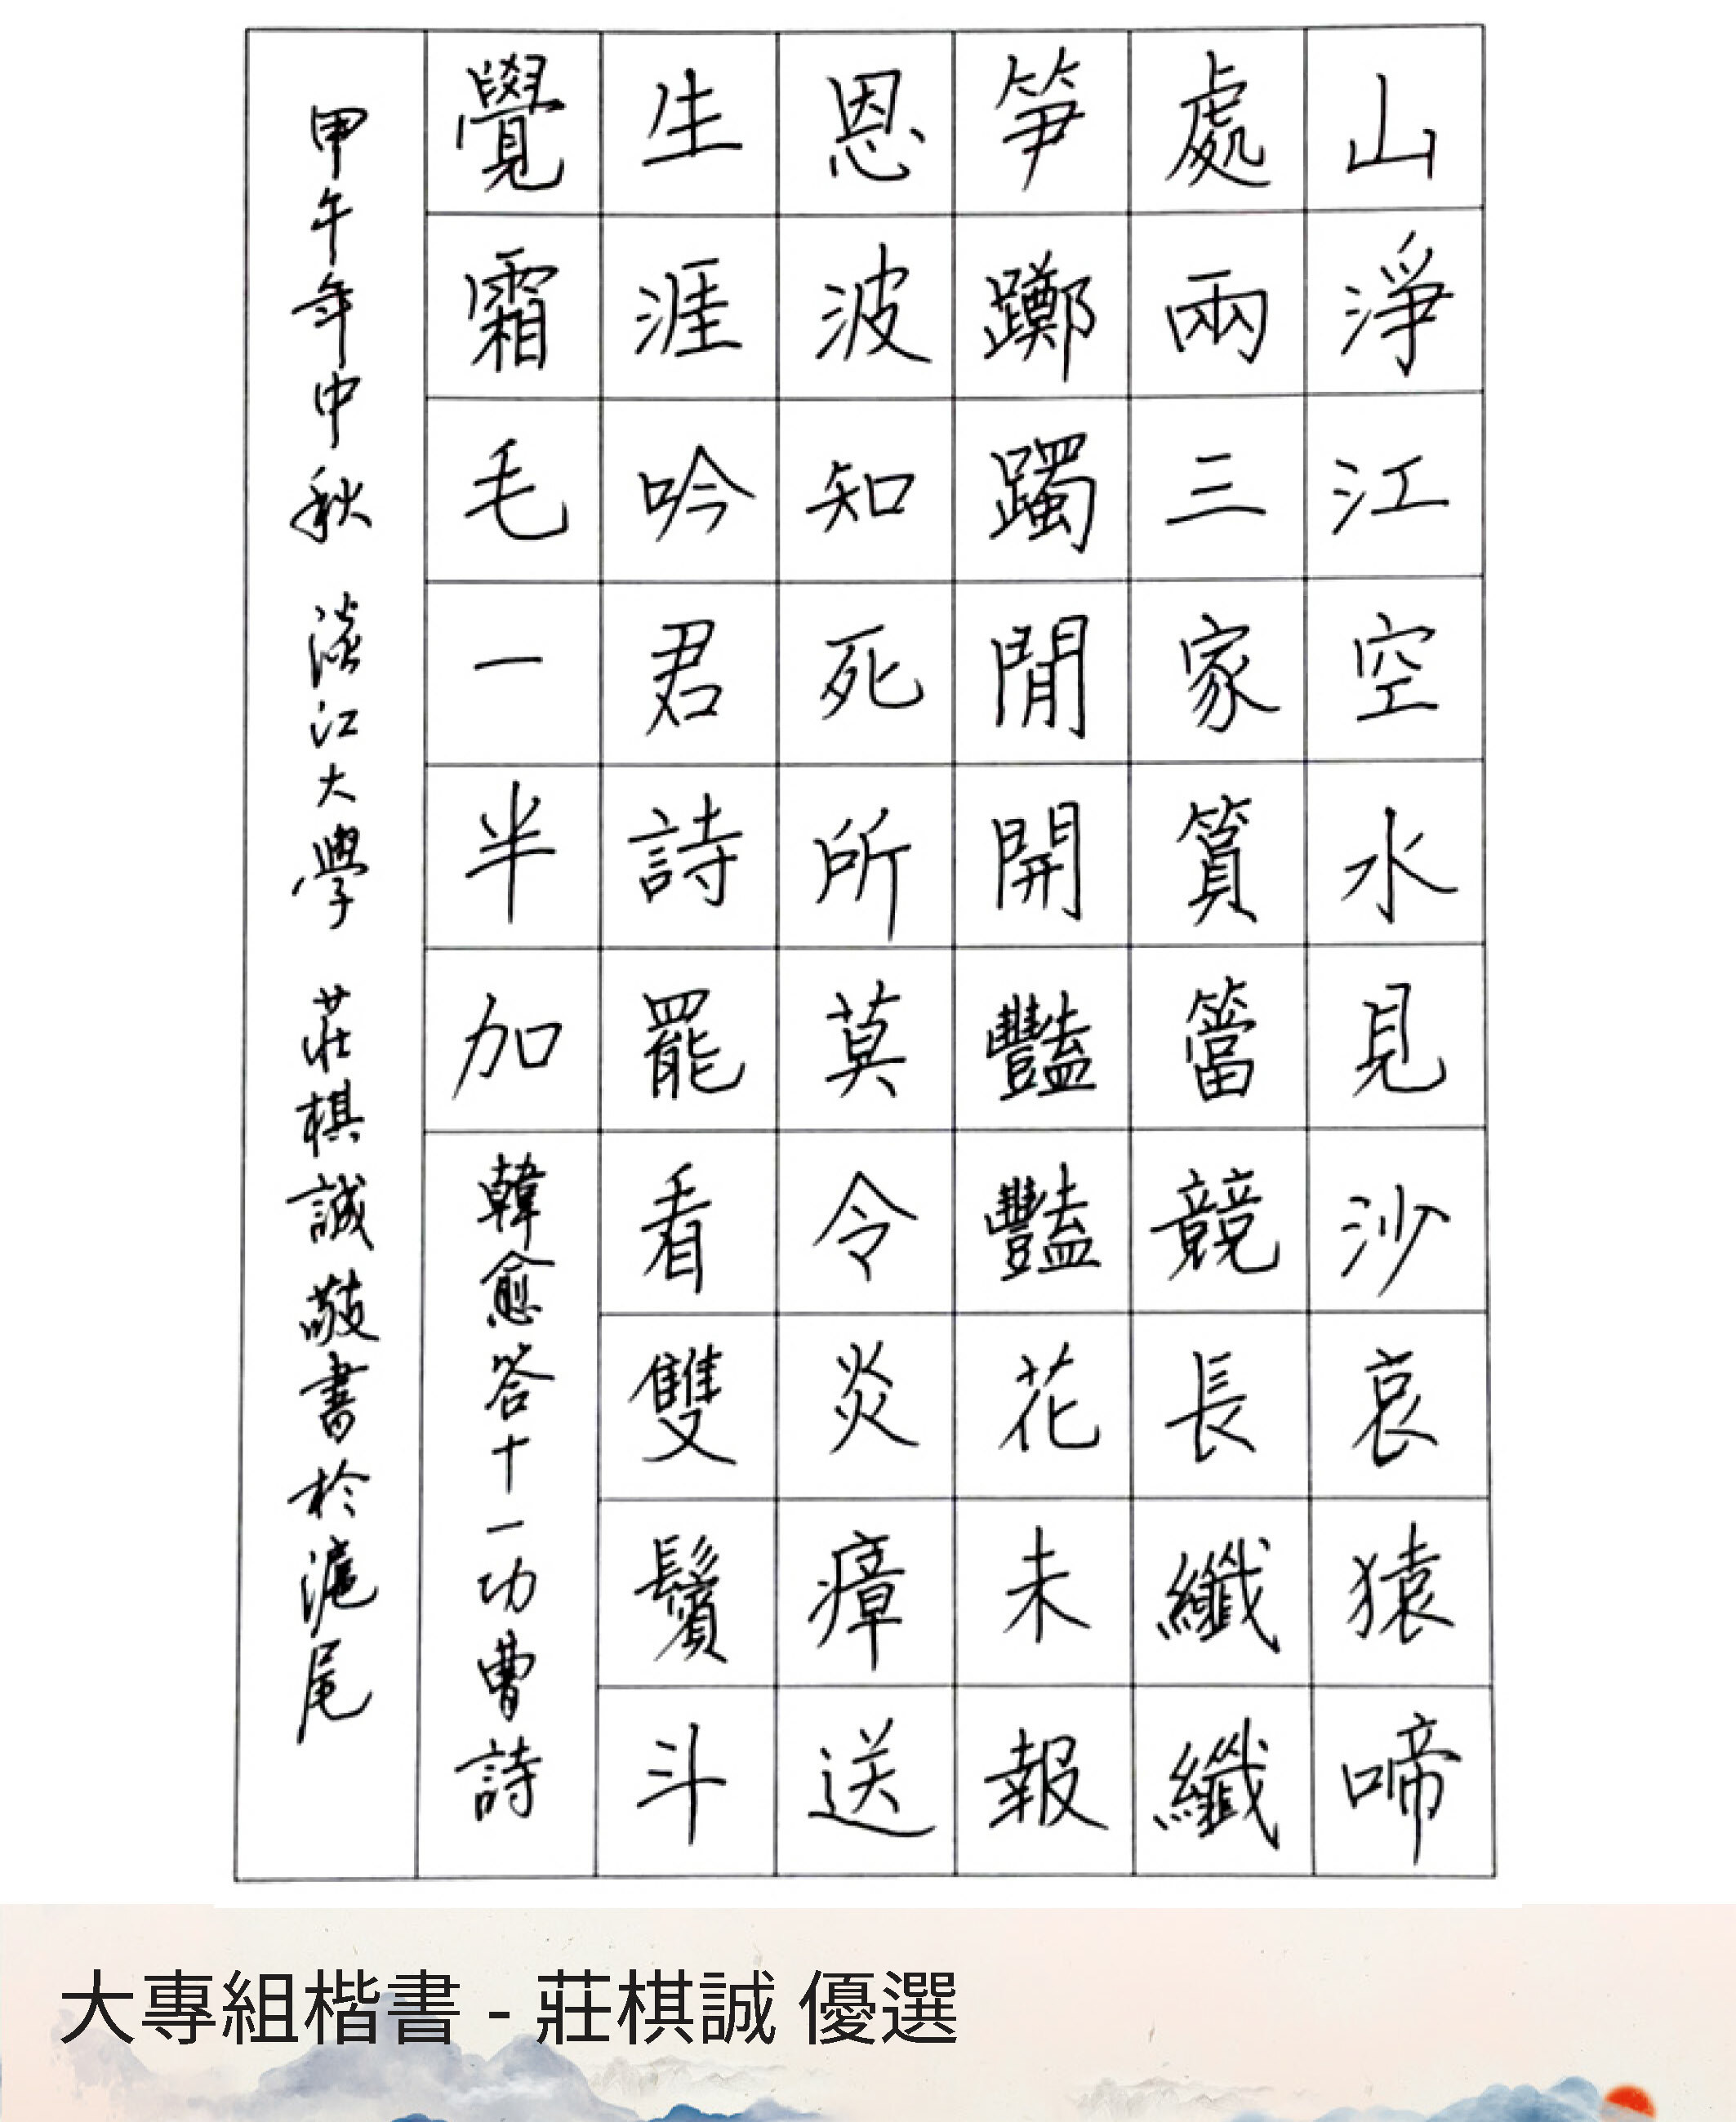 山淨江空水見沙哀猿啼
處兩三家篔簹競長纖纖
笋躑躅閒開豔豔花未報
恩波知死所莫令炎瘴送
生涯吟君詩罷看雙鬢斗
覺霜毛一半加 韓愈答十一功曹詩
甲午年中秋 淡江大學 莊棋誠敬書於滬尾
大專組楷書 - 莊棋誠 優選